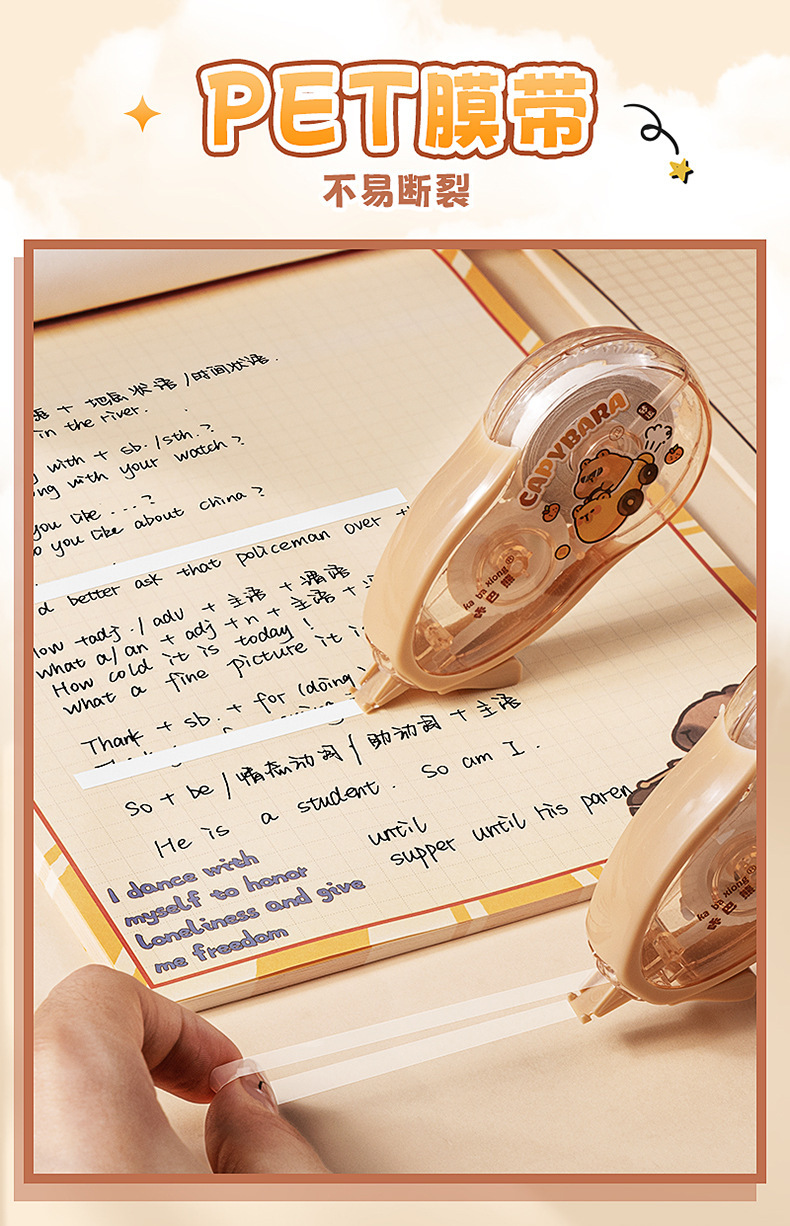 PET膜带
不易断裂
语 + 地点状语 / 时间状语.
in the river.
with + sb. / sth. ?
ng with your watch ?
you like ... ?
o you like about china ?
d better ask that policeman over
How + adj. / adv + 主语 + 谓语
what a/an + adj + n + 主语 +
How cold it is today !
what a fine picture it i
Thank + sb. + for (doing)
So + be / 情态动词 / 助动词 + 主语
He is a student. So am I.
until
supper until his paren
I dance with
myself to honor
loneliness and give
me freedom
CAPYBARA
ka ba xiong
咔巴熊
ka ba xiong
咔巴熊